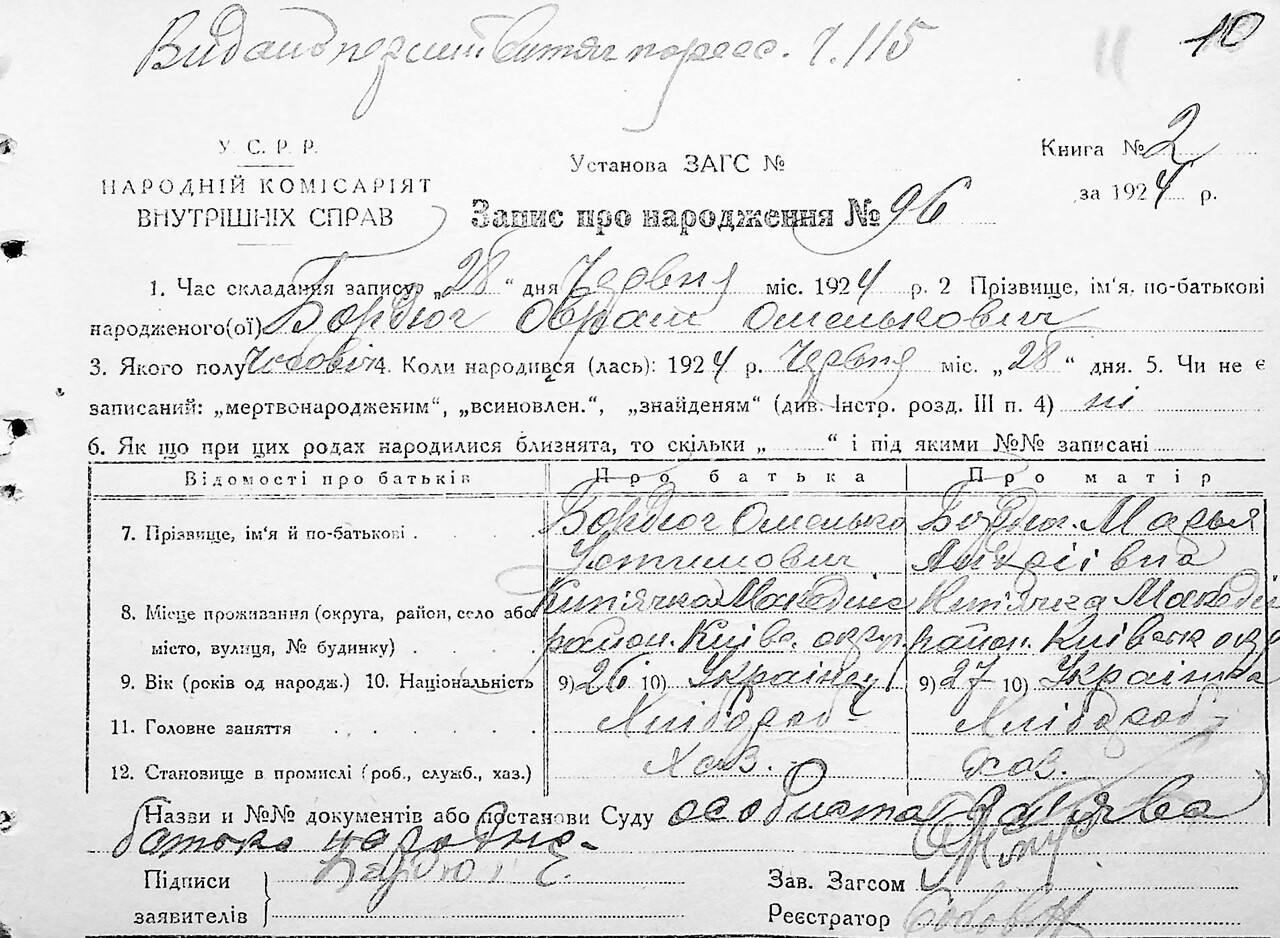 Видано перший витяг по реєс. ч. 115
10
У. С. Р. Р.
НАРОДНІЙ КОМІСАРІЯТ
ВНУТРІШНІХ СПРАВ
Установа ЗАГС №
Книга № 2
за 1924 р.
Запис про народження № 96
1. Час складання запису „28“ дня Червня міс. 1924 р. 2 Прізвище, ім'я, по-батькові
народженого(ої) Бордюг Оврам Омелькович
3. Якого полу Чоловіч 4. Коли народився (лась): 1924 р. Червня міс. „28“ дня. 5. Чи не є
записаний: „мертвонародженим“, „всиновлен.“, „знайденям“ (див. Інстр. розд. III п. 4) ні
6. Як що при цих родах народилися близнята, то скільки „ “ і під якими №№ записані
Відомості про батьків Про батька Про матір
7. Прізвище, ім'я й по-батькові Бордюг Омелько Бордюг Марья
Устимович
8. Місце проживання (округа, район, село або
місто, вулиця, № будинку) район. Київс. окру. район. Київськ окр
9. Вік (років од народж.) 10. Національність 9) 26 10) Українец 9) 27 10) Українка
11. Головне заняття Хлібороб Хлібороб
12. Становище в промислі (роб., служб., хаз.) Хаз. Хаз.
Назви и №№ документів або постанови Суду особиста заява
батька
Підписи
заявителів
Зав. Загсом
Реєстратор